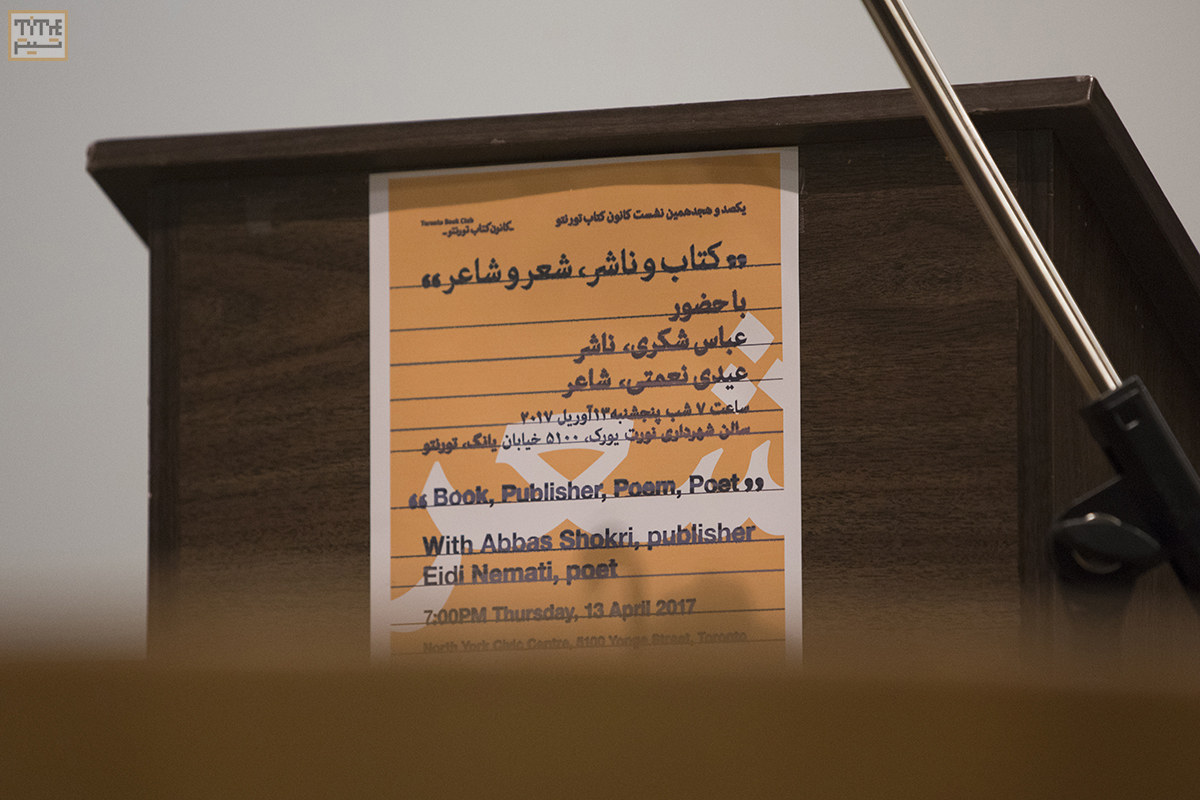 TITRE
تیتر
یکصد و هجدهمین نشست کانون کتاب تورنتو
Toronto Book Club
ـکانون کتاب تورنتوـ
”کتاب و ناشر، شعر و شاعر“
با حضور
عباس شکری، ناشر
عیدی نعمتی، شاعر
ساعت ۷ شب پنجشنبه ۱۳ آوریل ۲۰۱۷
سالن شهرداری نورت یورک، ۵۱۰۰ خیابان یانگ، تورنتو
شعر
“ Book, Publisher, Poem, Poet ”
With Abbas Shokri, publisher
Eidi Nemati, poet
7:00PM Thursday, 13 April 2017
North York Civic Centre, 5100 Yonge Street, Toronto